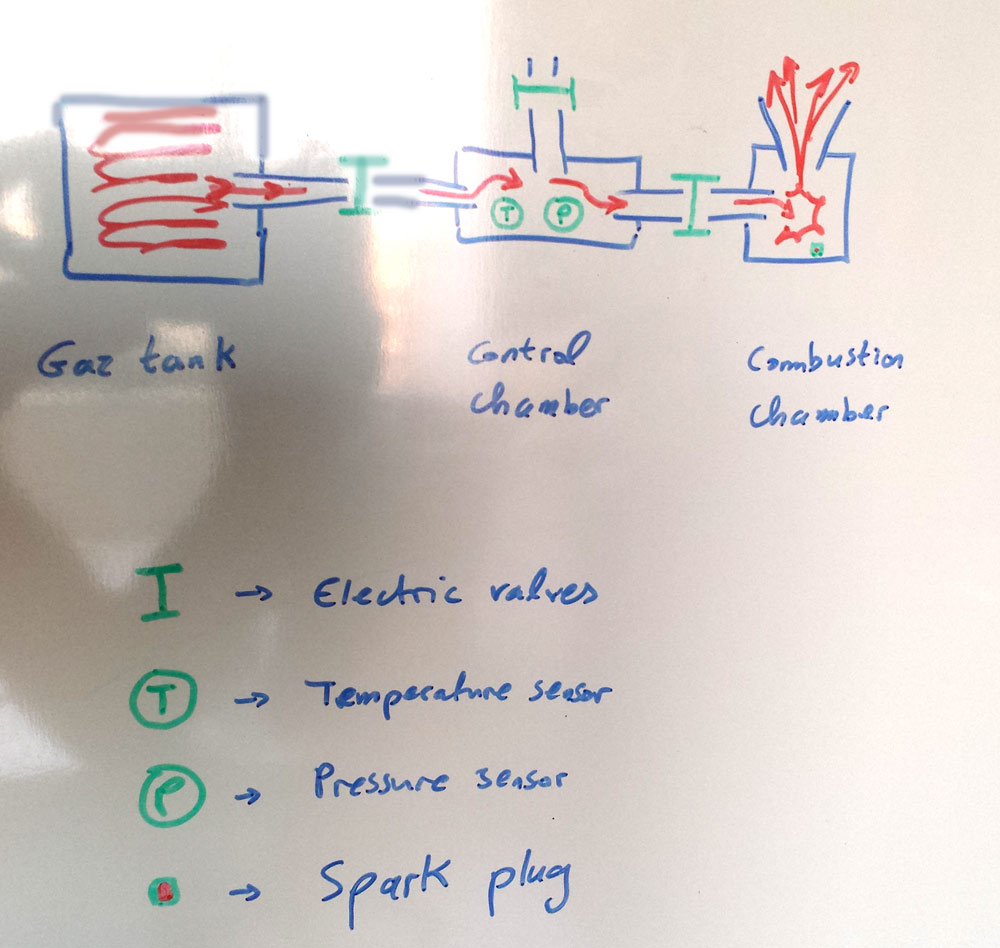 T P
Gaz tank
Control
chamber
Combustion
chamber
I → Electric valves
T → Temperature sensor
P → Pressure sensor
→ Spark plug